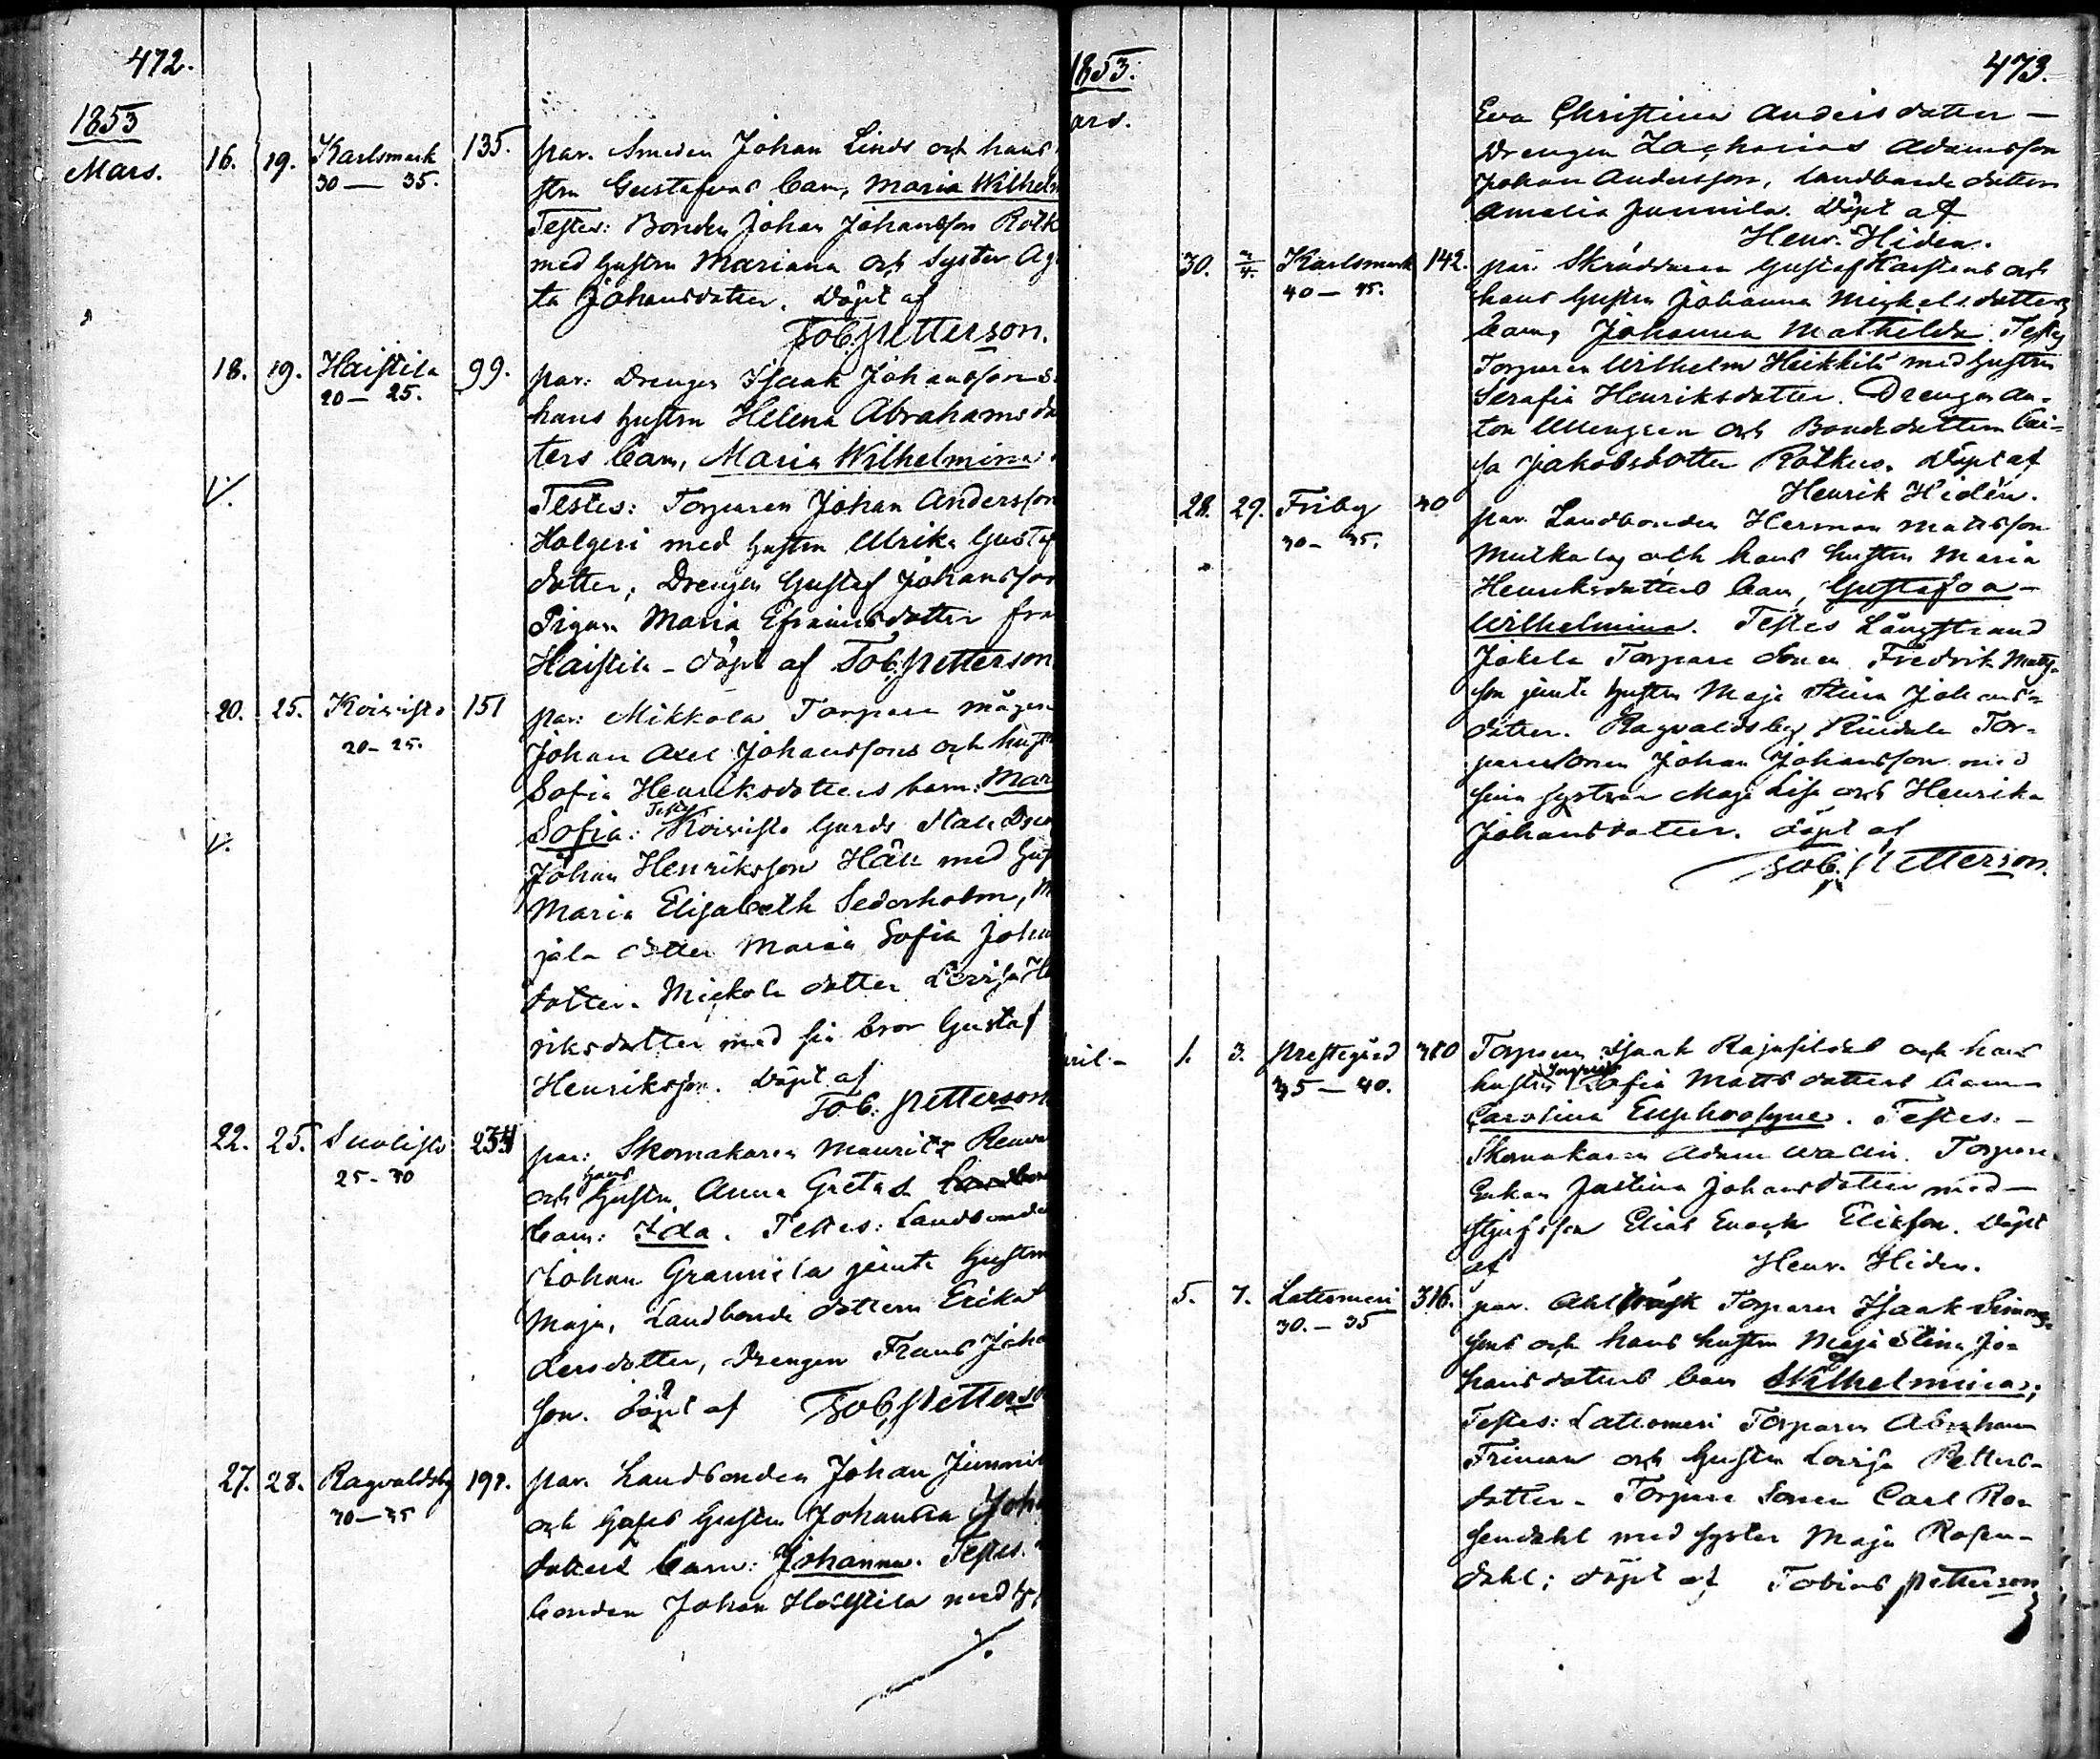 472.
1853
Mars.
16. 19. Karlsmark 135. par. Smeden Johan Linds och hans
30 — 35. stru Gustafvas barn, Maria Wilhelm
Testes: Bonden Johan Johansson Rotk
med hustru Mariana och Syster Ag
ta Johansdotter. döpt af
Tob. Petterson.
18. 19. Haistila 99. par: Drengen Isaak Johanssons
20 — 25. hans hustru Helena Abrahams do
ters barn, Maria Wilhelmina.
V. Testes: Torparen Johan Andersson
Holgeri med hustru Ulrika Gustaf
dotter, Drengen Gustaf Johansson
Pigan Maria Efraimsdotter frå
Haistila – döpt af Tob. Petterson
20. 25. Koivisto 151 par: Mikkola Torpare mågen
20 – 25. Johan Axel Johanssons och hust
Sofia Henriksdotters barn: Mar
V. Sofia: Testes Koivisto Gårds Stall Dre
Johan Henriksson Häll med hust
Maria Elisabeth Sederholm, M
jala dotter Maria Sofia Joha
dotter. Mickola dotter Lovisa He
riksdotter med sin bror Gustaf
Henriksson. Döpt af
Tob: Petterson
22. 25. Suolisto 234 par: Skomakaren Mauritz Renva
25 – 30 och hans hustru Anna Gretas
barn: Ida. Testes: Landbonde
Johan Grannila jemte hustru
Maja, Landbonde dottern Erika
dersdotter, Drengen Frans Joha
son. döpt af Tob. Petterso
27. 28. Ragvaldsby 191. par. Landbonden Johan Junnil
30 — 35 och hans hustru Johanna Joha
dotters barn: Johanna. Testes.
bonden Johan Haistila med
1853. 473.
ars.
Eva Christina Andersdotter —
Drengen Zacharias Adamsson
Johan Andersson, landbonde dottern
Amalia Junnila. Döpt af
Henr. Hiden.
30. 2/4. Karlsmark 142. par. Skräddaren Gustaf Karstens och
40 — 45. hans hustru Johanna Mickelsdotters
barn, Johanna Mathilda. Testes
Torparen Wilhelm Heikkilä med hustru
Serafia Henriksdotter. Drengen An-
ton Ullengren och Bondedottern Cai-
sa Jakobsdotter Rotkus. Döpt af
Henrik Hidén.
28. 29. Friby 40 par. Landbonden Herman Mattsson
30 – 35. och hans hustru Maria
Henriksdotters barn, Gustafva –
Wilhelmina. Testes Långstrand
Jakela Torpare Sonen Fredrik Matts-
son jemte hustru Maja Stina Johans-
dotter. Ragvaldsby Tor-
pare Sonen Johan Johansson med
sina systrar Maja Lisa och Henrika
Johansdotter. döpt af
Tob. Petterson.
ril – 1. 3. Prestegård 380 Torparen Isaak och hans
35 — 40. hustru Sofia Mattsdotters barn –
Carolina Euphrosyne. Testes: –
Skomakaren Adam Wallin. Torpare
Enkan Justina Johansdotter med –
Styfsson Elias Enoch Eliasson. Döpt
af Henr. Hiden.
5. 7. Lattomeri 316. par. Torparen Isaak Simons-
30. – 35 sons och hans hustru Maja Stina Jo-
hansdotters barn Wilhelmina;
Testes: Lattomeri Torparen Abraham
Friman och hustru Lovisa Petters-
dotter. Torpare Sonen Carl Ro-
sendahl med syster Maja Rosen-
dahl; döpt af Tobias Petterson